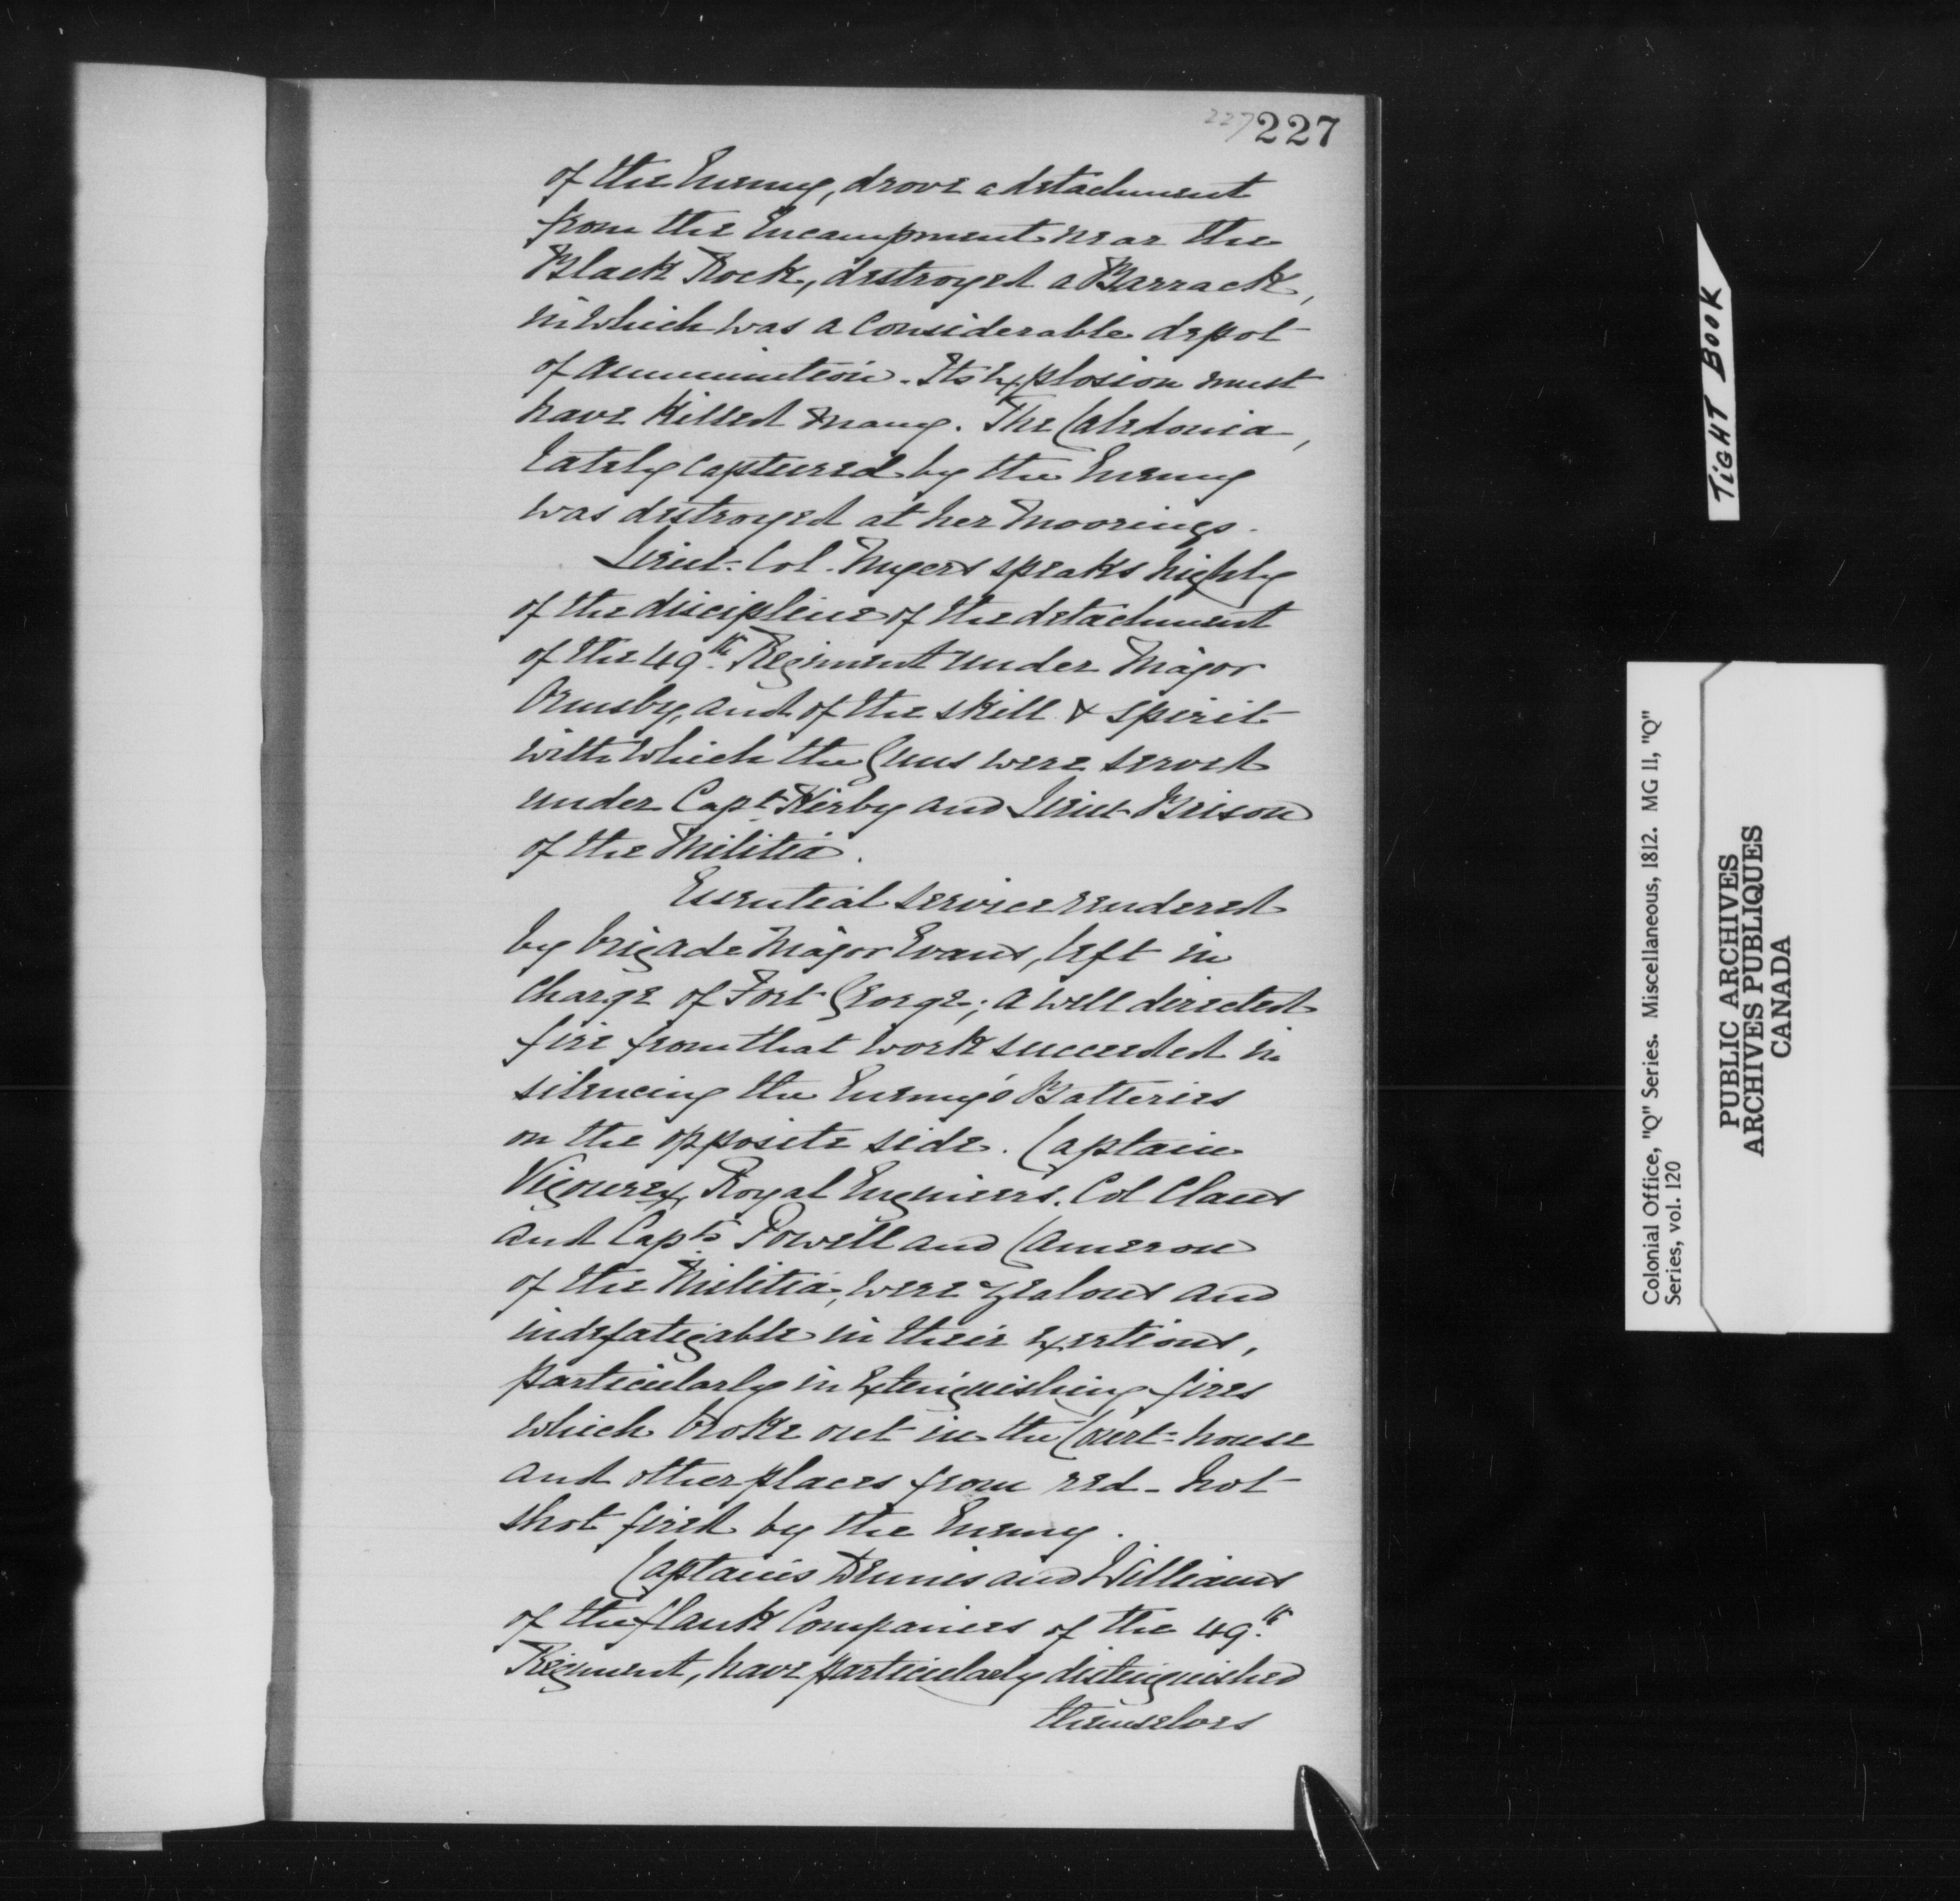 227 227
of the Enemy, drove a detachment
from the Encampment near the
Black Rock, destroyed a Barrack,
in which was a Considerable depot
of ammunition. Its Explosion must
have killed many. The Caledonia,
lately captured by the Enemy
was destroyed at her moorings.
Lieut. Col. Myers speaks highly
of the discipline of the detachment
of the 49th Regiment under Major
Ormsby, and of the skill & spirit
with which the Guns were served
under Capt Kirby and Lieut Brison
of the Militia.
Essential service rendered
by brigade Major Evans, left in
charge of Fort George; a well directed
fire from that work succeeded in
silencing the Enemy's Batteries
on the opposite side. Captain
Vigourex, Royal Engineers. Col Claus
and Capts Powell and Cameron
of the Militia, were zealous and
indefatigable in their Exertions,
particularly in Extinguishing fires
which broke out in the Court=house
and other places from red-hot
shot fired by the Enemy.
Captains Dennis and Williams
of the flank Companies of the 49th
Regiment, have particularly distinguished
themselves
TIGHT BOOK
Colonial Office, "Q" Series. Miscellaneous, 1812. MG 11, "Q"
Series, vol. 120
PUBLIC ARCHIVES
ARCHIVES PUBLIQUES
CANADA